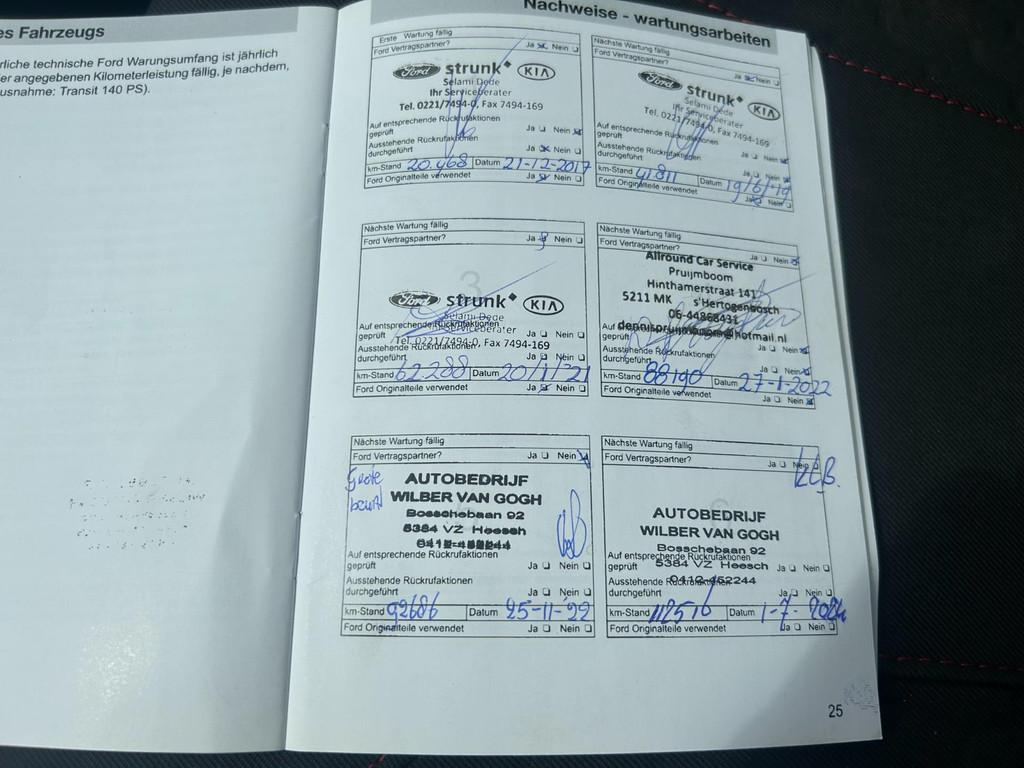 es Fahrzeugs
rliche technische Ford Warungsumfang ist jährlich
er angegebenen Kilometerleistung fällig, je nachdem,
usnahme: Transit 140 PS).
Nachweise - wartungsarbeiten
Erste Wartung fällig
Ford Vertragspartner? Ja Nein
Ford strunk KIA
Selami Dede
Ihr Serviceberater
Tel. 0221/7494-0, Fax 7494-169
Auf entsprechende Rückrufaktionen
geprüft Ja Nein
Ausstehende Rückrufaktionen
durchgeführt Ja Nein
km-Stand 20.468 Datum 21-12-2017
Ford Originalteile verwendet Ja Nein
Nächste Wartung fällig
Ford Vertragspartner? Ja Nein
Ford strunk KIA
Selami Dede
Ihr Serviceberater
Tel. 0221/7494-0, Fax 7494-169
Auf entsprechende Rückrufaktionen
geprüft Ja Nein
Ausstehende Rückrufaktionen
durchgeführt Ja Nein
km-Stand 41811 Datum 19/6/19
Ford Originalteile verwendet Ja Nein
Nächste Wartung fällig
Ford Vertragspartner? Ja Nein
3
Ford strunk KIA
Selami Dede
Auf entsprechende Rückrufaktionen
Serviceberater
geprüft Ja Nein
Tel. 0221/7494-0, Fax 7494-169
Ausstehende Rückrufaktionen
durchgeführt Ja Nein
km-Stand 62.288 Datum 20/1/21
Ford Originalteile verwendet Ja Nein
Nächste Wartung fällig
Ford Vertragspartner? Ja Nein
Allround Car Service
Pruijmboom
Hinthamerstraat 141
5211 MK s'Hertogenbosch
06-44868431
dennispruijmboom@hotmail.nl
geprüft Ja Nein
Ausstehende Rückrufaktionen
durchgeführt Ja Nein
km-Stand 88190 Datum 27-1-2022
Ford Originalteile verwendet Ja Nein
Nächste Wartung fällig
Ford Vertragspartner? Ja Nein
Grote
beurt
AUTOBEDRIJF
WILBER VAN GOGH
Bosschebaan 92
5384 VZ Heesch
Auf entsprechende Rückrufaktionen
geprüft Ja Nein
Ausstehende Rückrufaktionen
durchgeführt Ja Nein
km-Stand 92686 Datum 25-11-'22
Ford Originalteile verwendet Ja Nein
Nächste Wartung fällig
Ford Vertragspartner? Ja Nein
AUTOBEDRIJF
WILBER VAN GOGH
Bosschebaan 92
Auf entsprechende Rückrufaktionen
5384 VZ Heesch
geprüft Ja Nein
Ausstehende Rückrufaktionen
0412-452244
durchgeführt Ja Nein
km-Stand 112516 Datum 1-7-2024
Ford Originalteile verwendet Ja Nein
25